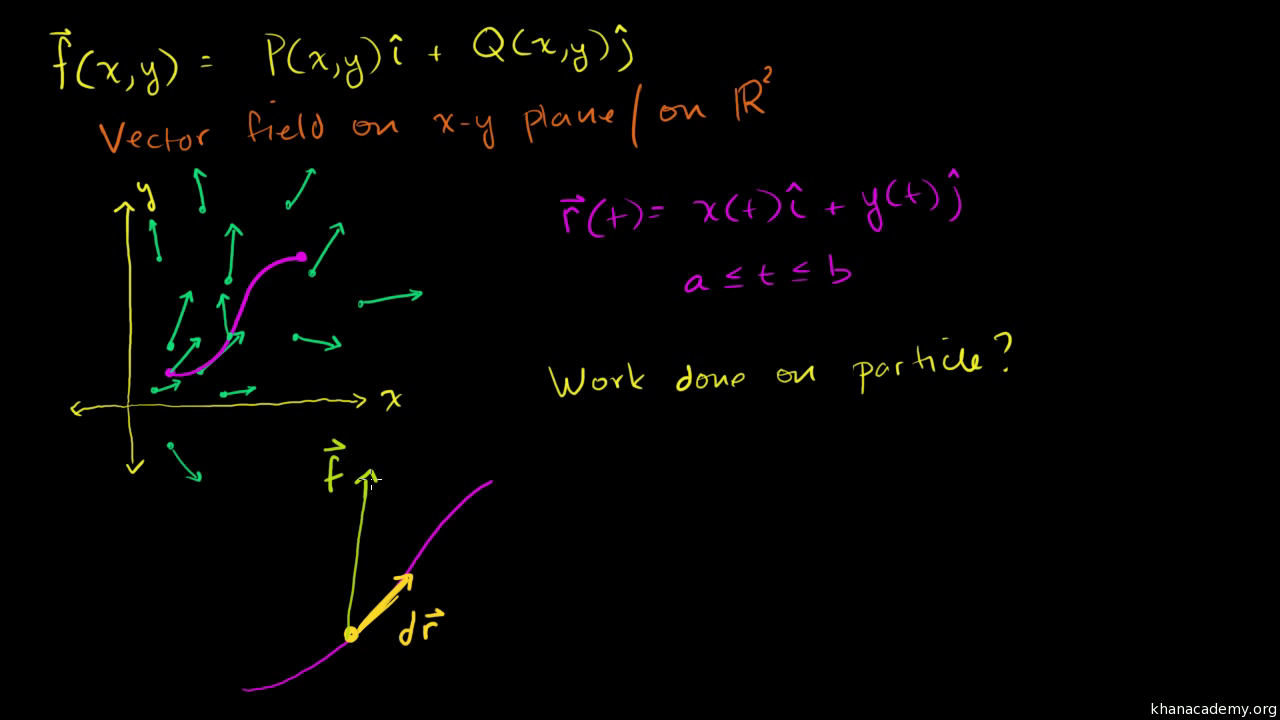 f⃗(x,y) = P(x,y)î + Q(x,y)ĵ
Vector field on x-y plane / on ℝ²
y
r⃗(t) = x(t)î + y(t)ĵ
a ≤ t ≤ b
Work done on particle?
x
f⃗
dr⃗
khanacademy.org